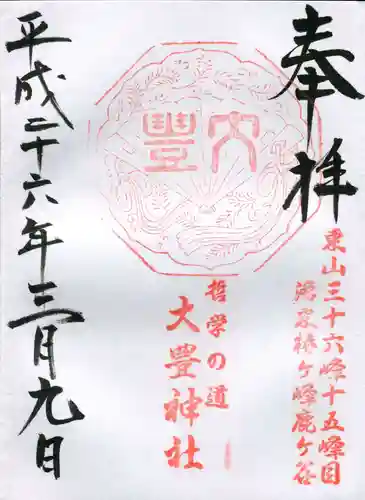 奉拝
東山三十六峰十五峰目
椿ケ峰鹿ケ谷
大豐
哲学の道
大豊神社
平成二十六年三月九日